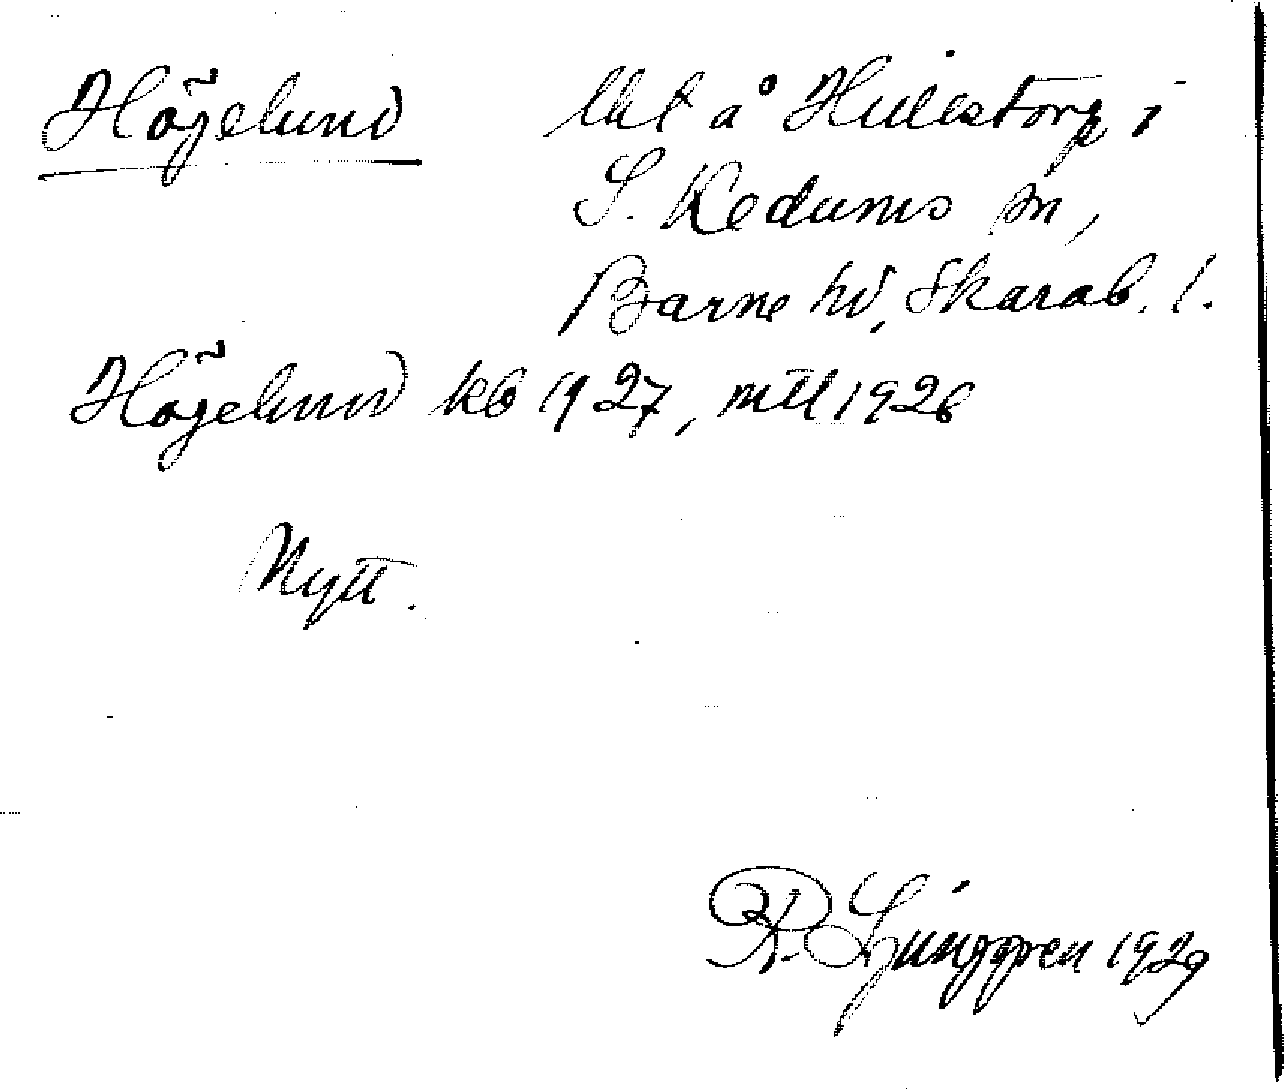 Högelund
Utl å Hillestorp i
S. Kedums sn,
Barne hd, Skarab. l.
Högelund kb 1927, mtl 1926
Nytt.
R. Ljunggren 1929